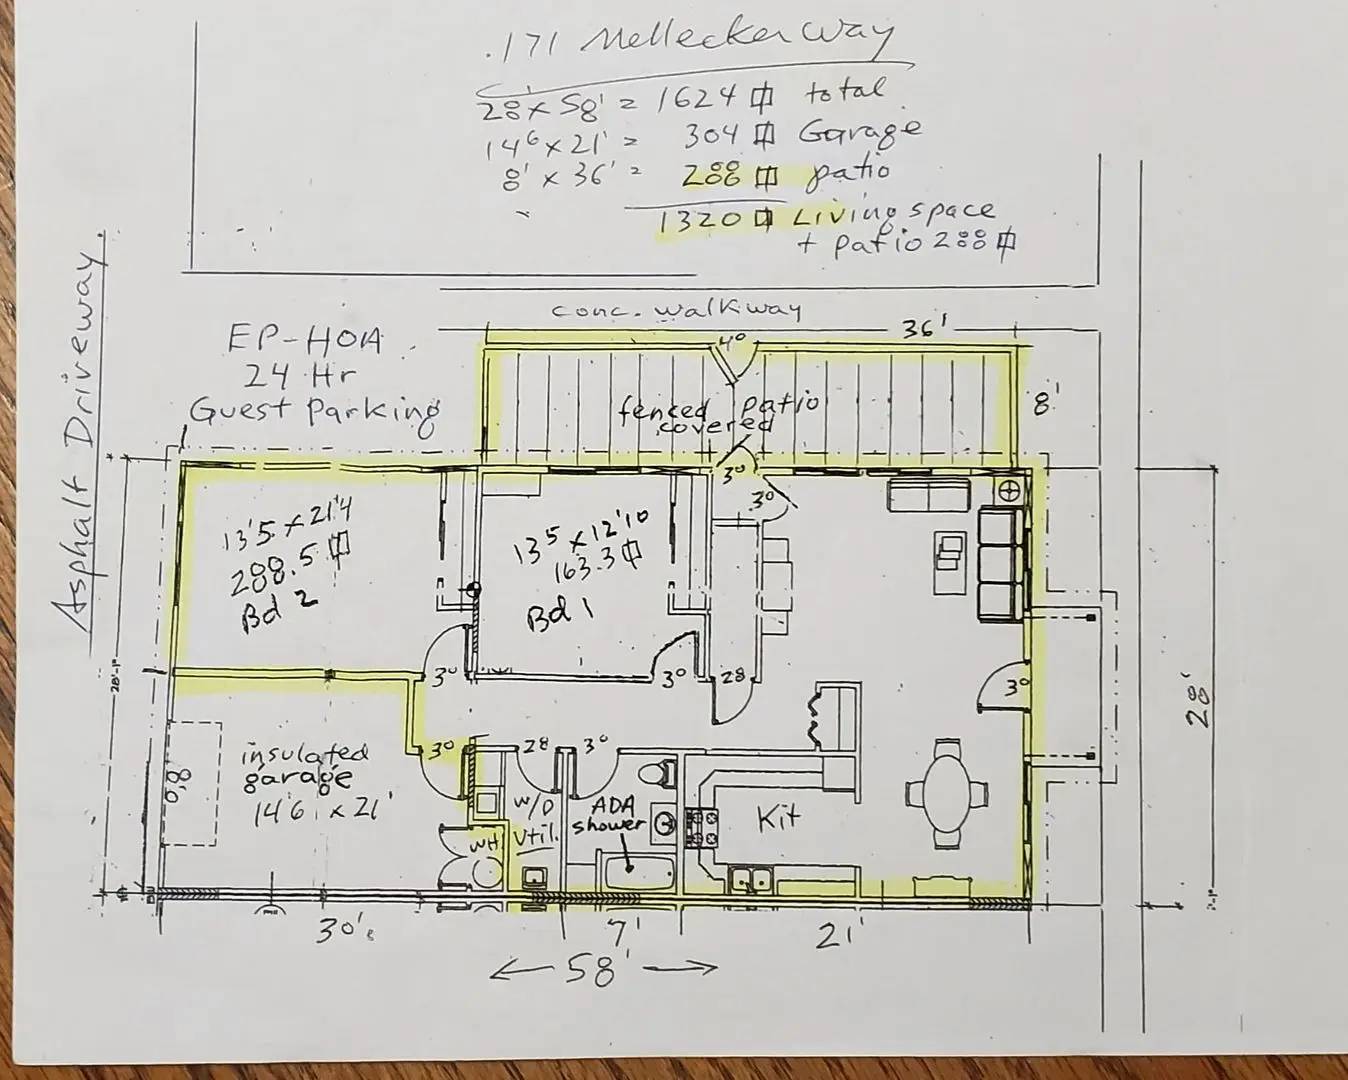 .171 Mellecker Way
28 x 58' = 1624 ⌷ total
14⁶ x 21' = 304 ⌷ Garage
8' x 36' = 288 ⌷ patio
1320 ⌷ Living space
+ patio 288 ⌷
conc. walkway
Asphalt Driveway
EP-HOA
24 Hr
Guest Parking
36'
4⁰
8'
fenced patio
covered
3⁰
3⁰
13'5 x 21'4
288.5 ⌷
Bd 2
13⁵ x 12'10
163.3 ⌷
Bd 1
3⁰
3⁰
28
3⁰
28'-1"
28'
insulated
garage
14'6 x 21'
8'0
3⁰
28
3⁰
W/D
Util.
WH
ADA
shower
Kit
30'
7'
21'
58'